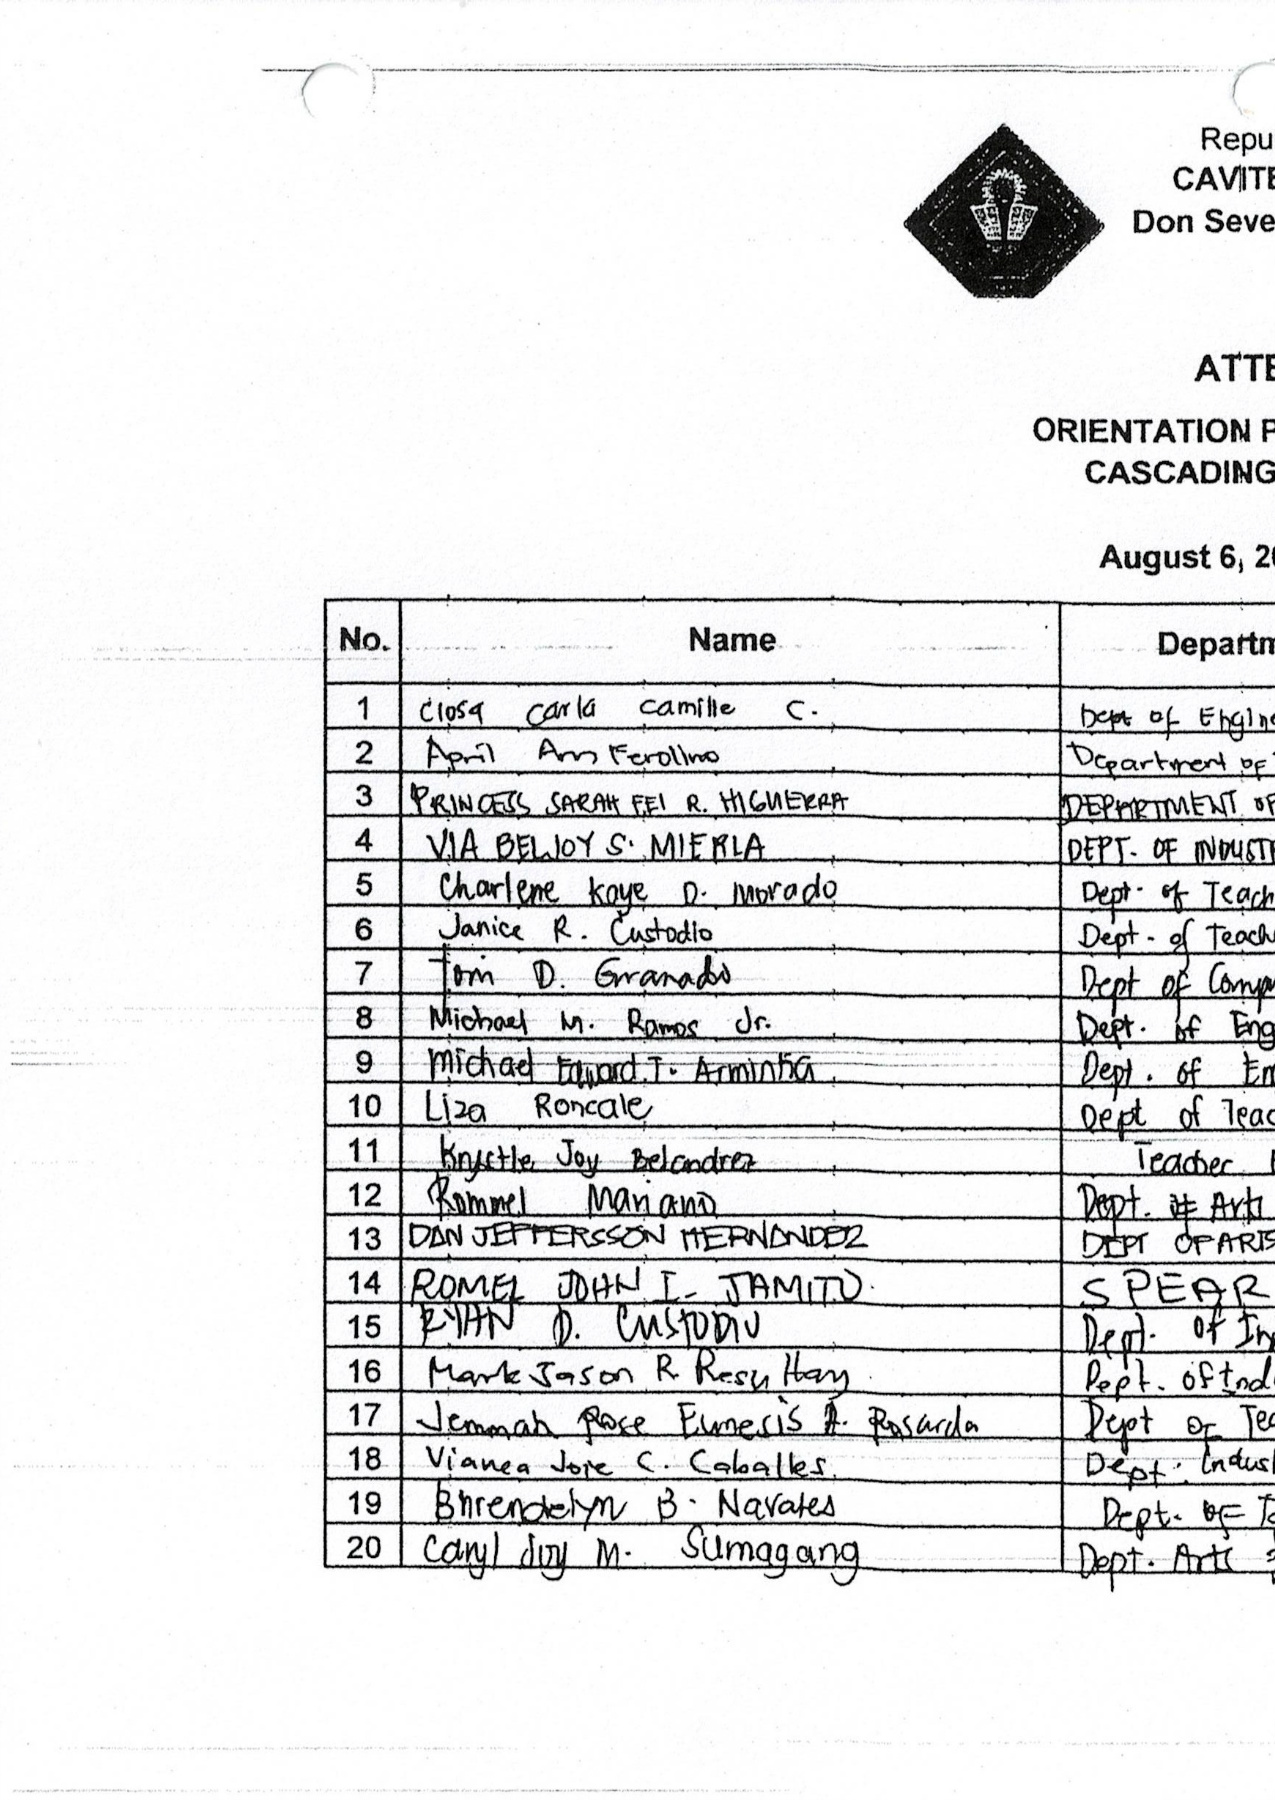 Repu
CAVITE
Don Seve
ATTE
ORIENTATION P
CASCADING
August 6, 20
No. Name Departm
1 Closa Carla Camille C. Dept of Engine
2 April Ann Ferolino Department of
3 PRINCESS SARAH FEI R. HIGUERRA DEPARTMENT OF
4 VIA BELJOY S. MIERLA DEPT. OF INDUSTR
5 Charlene Kaye D. Morado Dept. of Teach
6 Janice R. Custodio Dept. of Teach
7 Tom D. Granado Dept of Comp
8 Michael M. Ramos Jr. Dept. of Eng
9 Michael Edward T. Armintia Dept. of En
10 Liza Roncale Dept of Teac
11 Krystle Joy Belandrez Teacher
12 Rommel Mariano Dept. of Arts
13 DAN JEFFERSSON HERNANDEZ DEPT OF ARTS
14 ROMEL JOHN I. JAMITO. SPEAR
15 RYAN D. CUSTODIO Dept. of In
16 Mark Jason R. Resultay Dept. of Ind
17 Jemmah Rose Eunesis A. Rosarda Dept of Tea
18 Vianca Jore C. Caballes. Dept. Indust
19 Bhrendelyn B. Navales Dept. of
20 Caryl Joy M. Sumagang Dept. Arts